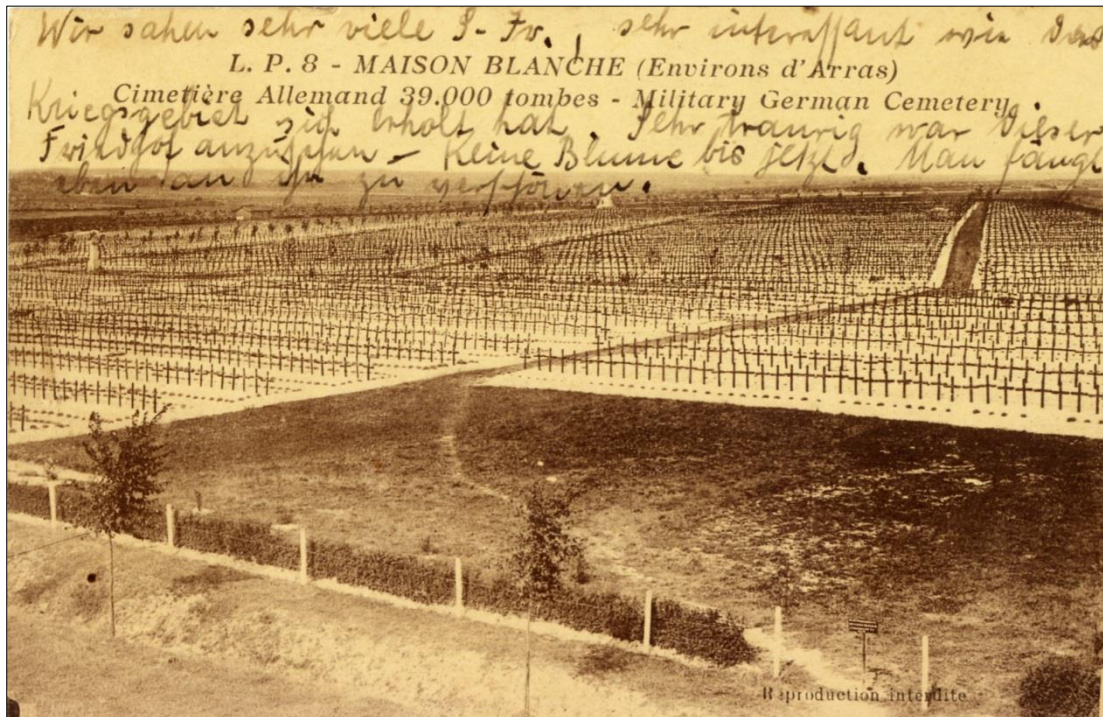 Wir sahen sehr viele S-Fr., sehr interessant wie das
L. P. 8 - MAISON BLANCHE (Environs d'Arras)
Cimetière Allemand 39.000 tombes - Military German Cemetery
Kriegsgebiet sich erholt hat. Sehr traurig war dieser
Friedhof anzusehen - Keine Blume bis jetzt. Man fängt
eben an ihn zu verschönen.
Reproduction interdite